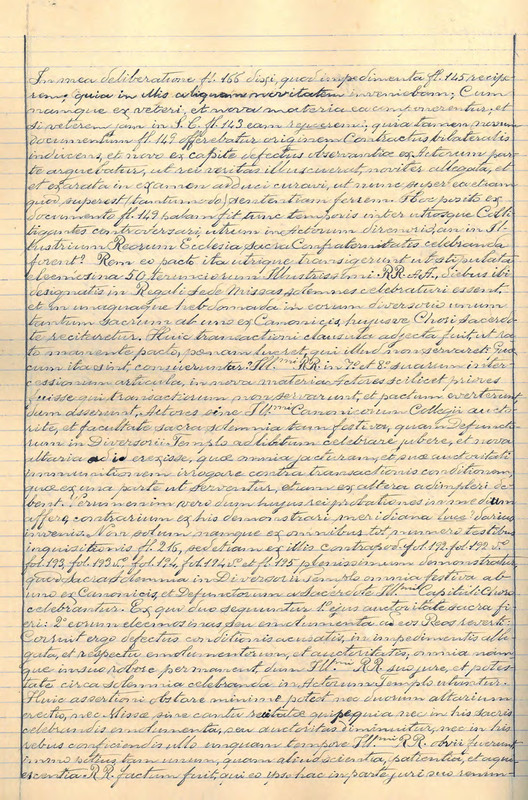 In mea deliberatione fl. 166 dixi, quod impedimenta fl. 145 recip
rem, quia in illis aliquam novitatem inveniebam; Cum
namque ex veteri, et nova materia ea componerentur, et
si veterem jam in S. C. fl. 143 eam rejecerim, quia tamen novum
documentum fl. 149 offerebatur originem Contractus bilateralis
indicens, et novo ex capite defectus observantiæ ex Actorum par
te arguebatur, ut rei veritas illucesceret, noviter allegata, et
et exarata in examen adduci curavi, ut nunc super ea etiam
quod superest (tantum modo) sententiam ferrem. Hoc posito ex
documento fl. 149 palam fit tunc temporis inter utrosque Colli
tigantes controversari, utrum in Actorum an in Il
lustrium Reorum Ecclesia sacra Confraternitatis celebranda
forent? Rem eo pacto ita utrique transigerunt ut stipulata
eleemosina 50 terunciorum Illustrissimi RR. AA. diebus ibi
designatis in Regali Sede Missas solemnes celebraturi essent,
et in unaquaque hebdomada in eorum diversorio unum
tantum sacrum ab uno ex Canonicis, hujusve Chori Sacerdo
te recitaretur. Huic transactioni clausula adjecta fuit, ut ra
to manente pacto, pœnam lueret, qui illud non servaret: Quæ
cum ita sint, conqueruntur Ill.mi RR. in 7.º et 8.º suarum inter
cessionum articula, in nova materia Actores scilicet priores
fuisse qui transactionem non servarunt, et pactum everterunt
dum asserunt, Actores sine Ill.mi Canonicorum Collegii aucto
ritate, et facultate sacra solemnia tam festiva, quam Defuncto
rum in Diversorii Templo ad libitum celebrare jubere, et nova
altaria ad id erexisse, quæ omnia jacturam, et suæ auctoritati
imminutionem irrogare contra transactionis conditionem,
quæ ex una parte ut serventur, etiam ex altera adimpleri de
bent. Verum enim vero dum hujus rei probationes in medium
affero contrarium ex his demonstrari meridiana luce clarius
invenio. Non solum namque ex omnibus tot numeri testibus
inquisitionis fl. 216, sed etiam ex illis contrapos. fol 192, fol 192 v.º
fol 193, fol 193 v.º, fol 194, fol 194 v.º et fl. 195 plenissimum demonstratur,
quod sacra solemnia in Diversorii templo omnia festiva ab
uno ex Canonicis, et Defunctorum a Sacerdote Ill.mi Capituli Chori
celebrantur. Ex quo duo sequuntur 1.º ejus auctoritate sacra fi
eri: 2.º eorum eleemosinas seu emolumenta ad eos Reos reverti.
Corruit ergo defectus conditionis accusatus, in impedimentis alle
gata, et respectu emolumentorum, et auctoritatis, omnia nam
que in suo robore permanent dum Ill.mi RR. suo jure, et potes
tate circa solemnia celebranda in Actorum Templo utuntur.
Huic assertioni obstare minime potest nec duorum altarium
erectio, nec Missæ sine cantu recitatæ quia nec in his sacris
celebrandis emolumenta, seu auctoritas diminuitur, nec in his
rebus conficiendis ullo unquam tempore Ill.mi RR. obvii fuerunt
immo potius tam unum, quam aliud scientia, patientia, et acqui
escentia RR. factum fuit, qui eo ipso hac in parte juri suo renun